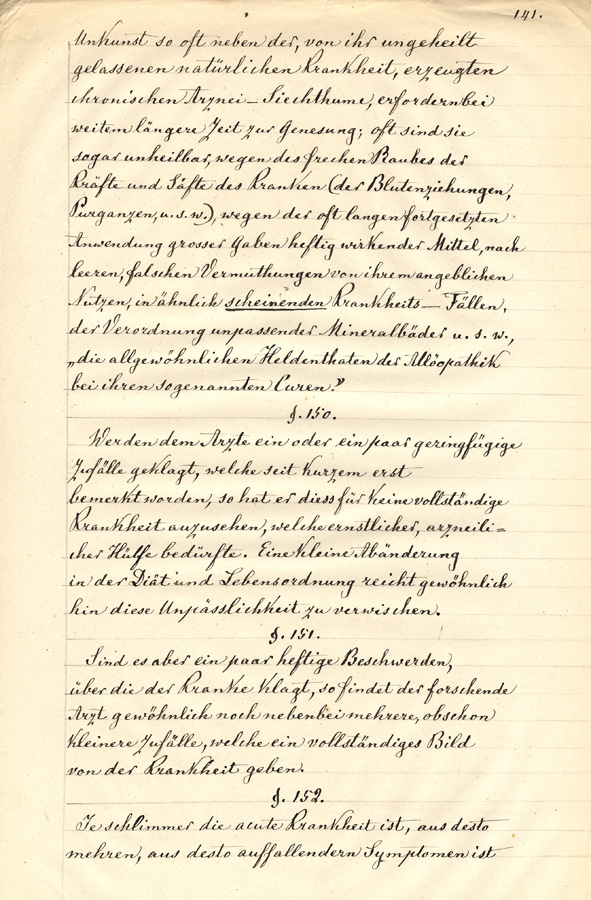 141.
Unkunst so oft neben der, von ihr ungeheilt
gelassenen natürlichen Krankheit, erzeugten
chronischen Arznei-Siechthume, erfordern bei
weitem längere Zeit zur Genesung; oft sind sie
sogar unheilbar, wegen des frechen Raubes der
Kräfte und Säfte des Kranken (der Blutenziehungen,
Purganzen, u. s. w.), wegen der oft langen fortgesetzten
Anwendung grosser Gaben heftig wirkender Mittel, nach
leeren, falschen Vermuthungen von ihrem angeblichen
Nutzen, in ähnlich scheinenden Krankheits-Fällen,
der Verordnung unpassender Mineralbäder u. s. w.,
„die allgewöhnlichen Heldenthaten der Allöopathik
bei ihren sogenannten Curen."
§. 150.
Werden dem Arzte ein oder ein paar geringfügige
Zufälle geklagt, welche seit Kurzem erst
bemerkt worden, so hat er diess für keine vollständige
Krankheit anzusehen, welche ernstlicher, arzneili=
cher Hülfe bedürfte. Eine kleine Abänderung
in der Diät und Lebensordnung reicht gewöhnlich
hin diese Unpässlichkeit zu verwischen.
§. 151.
Sind es aber ein paar heftige Beschwerden,
über die der Kranke klagt, so findet der forschende
Arzt gewöhnlich noch nebenbei mehrere, obschon
kleinere Zufälle, welche ein vollständiges Bild
von der Krankheit geben.
§. 152.
Je schlimmer die acute Krankheit ist, aus desto
mehren, aus desto auffallendern Symptomen ist